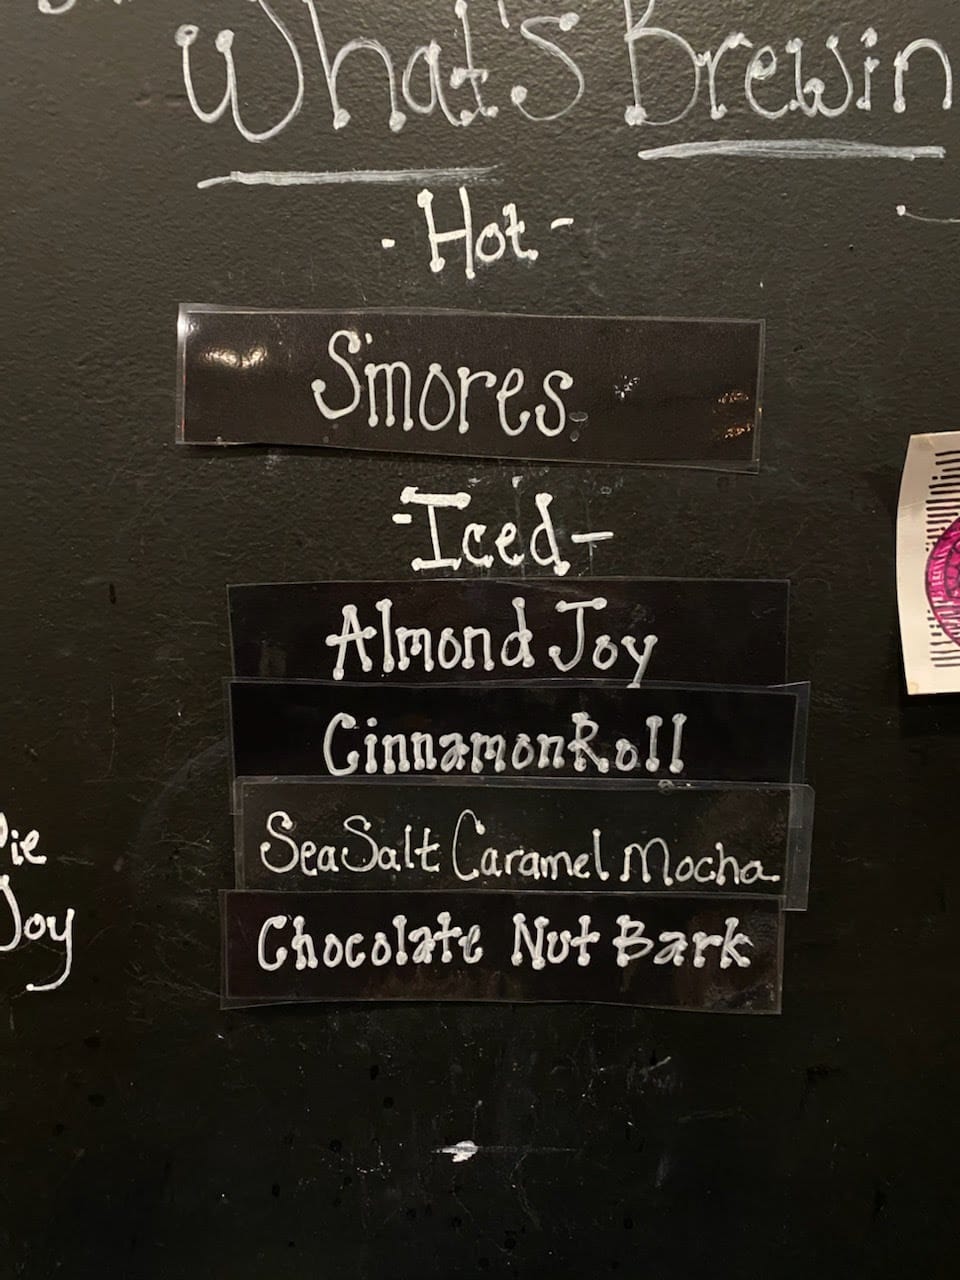 What's Brewin
- Hot -
S'mores
- Iced -
Almond Joy
Cinnamon Roll
Sea Salt Caramel Mocha
Chocolate Nut Bark
Pie
Joy